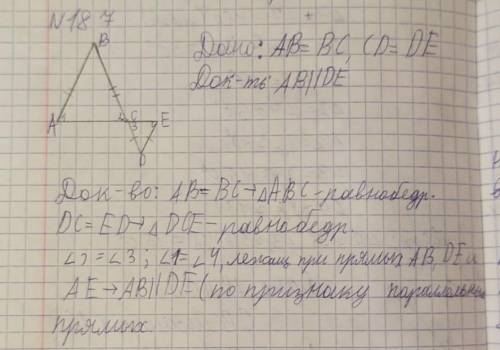 N 187
B
Дано: AB = BC, CD = DE
Док-ть: AB || DE
A
E
D
Док-во: AB = BC → △ABC - равнобедр.
DC = ED → △DCE - равнобедр.
∠3; ∠1 = ∠4, лежащ при прямых AB, DE и
AE → AB || DE (по признаку параллельных
прямых.